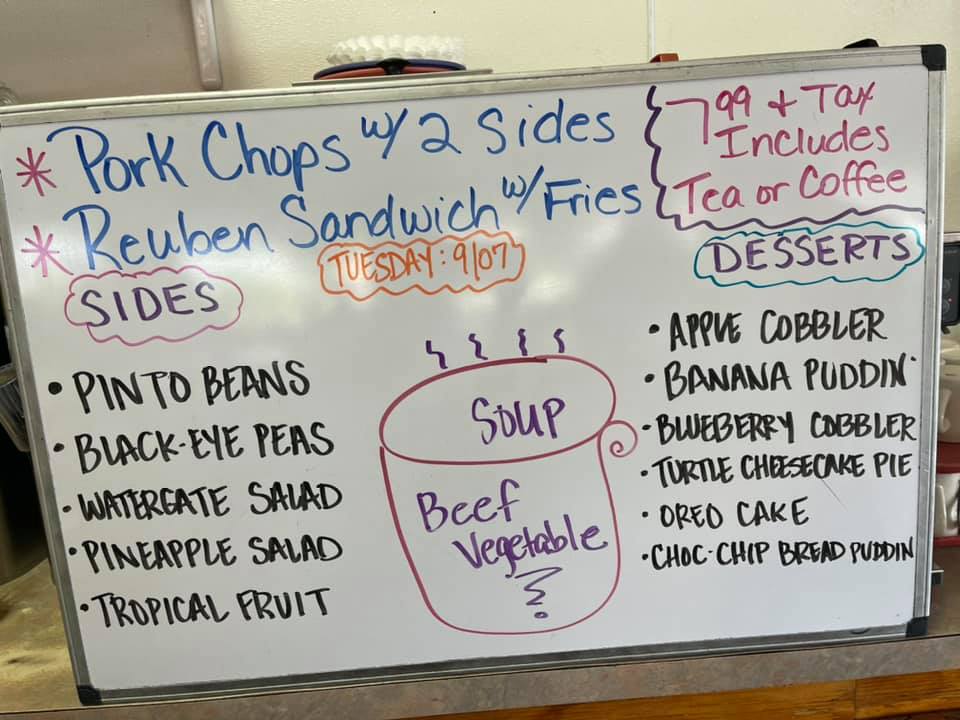 * Pork Chops w/ 2 Sides
* Reuben Sandwich w/ Fries
799 + Tax
Includes
Tea or Coffee
TUESDAY: 9/07
SIDES
• PINTO BEANS
• BLACK-EYE PEAS
• WATERGATE SALAD
• PINEAPPLE SALAD
• TROPICAL FRUIT
SOUP
Beef
Vegetable
DESSERTS
• APPLE COBBLER
• BANANA PUDDIN'
• BLUEBERRY COBBLER
• TURTLE CHEESECAKE PIE
• OREO CAKE
• CHOC-CHIP BREAD PUDDIN